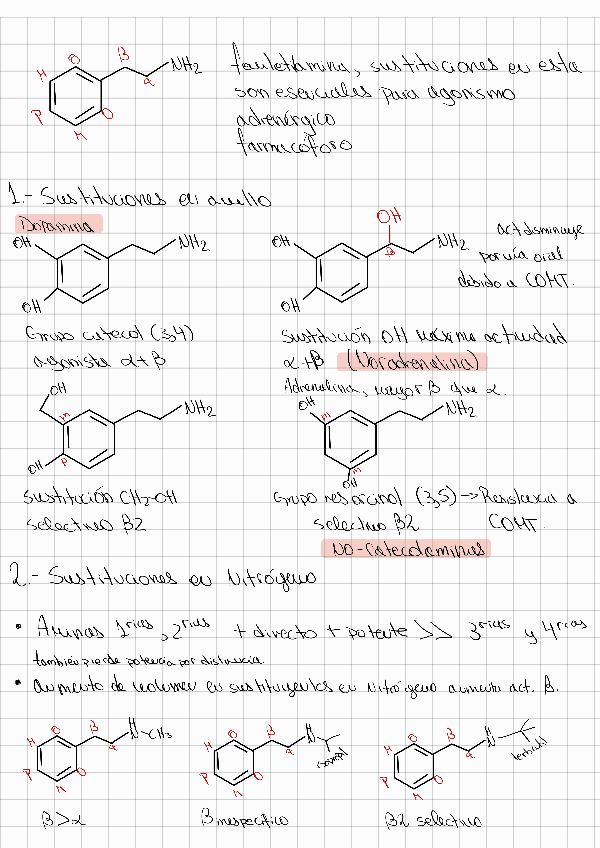 O
β
NH2
M
α
P
O
M
feniletilamina, sustituciones en esta
son esenciales para agonismo
adrenérgico
farmacóforo
1.- Sustituciones en anillo
Dopamina
OH
NH2
OH
Grupo catecol (3,4)
agonista α+β
OH
OH
NH2
β
OH
act disminuye
por vía oral
debido a COMT.
sustitución OH máxima actividad
α+β (Noradrenalina)
Adrenalina, mayor β que α.
OH
m
NH2
OH
p
sustitución CH2-OH
selectivo β2
OH
m
NH2
m
OH
Grupo resorcinol (3,5) → Resistencia a
selectivo β2 COMT.
NO-Catecolaminas
2.- Sustituciones en Nitrógeno
• Aminas 1rias, 2rias + directo + potente >> 3rias y 4rias
también pierde potencia por distancia.
• aumento de volumen en sustituyentes en nitrógeno aumenta act. β.
O
β
N-CH3
M
α
P
O
M
β>α
O
β
N
M
α
P
O
M
β inespecífico
O
β
N
terbutil
M
α
P
O
M
β2 selectivo